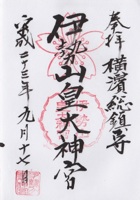 奉拝 横濱総鎮守
伊勢山皇大神宮
平成二十三年九月十七日